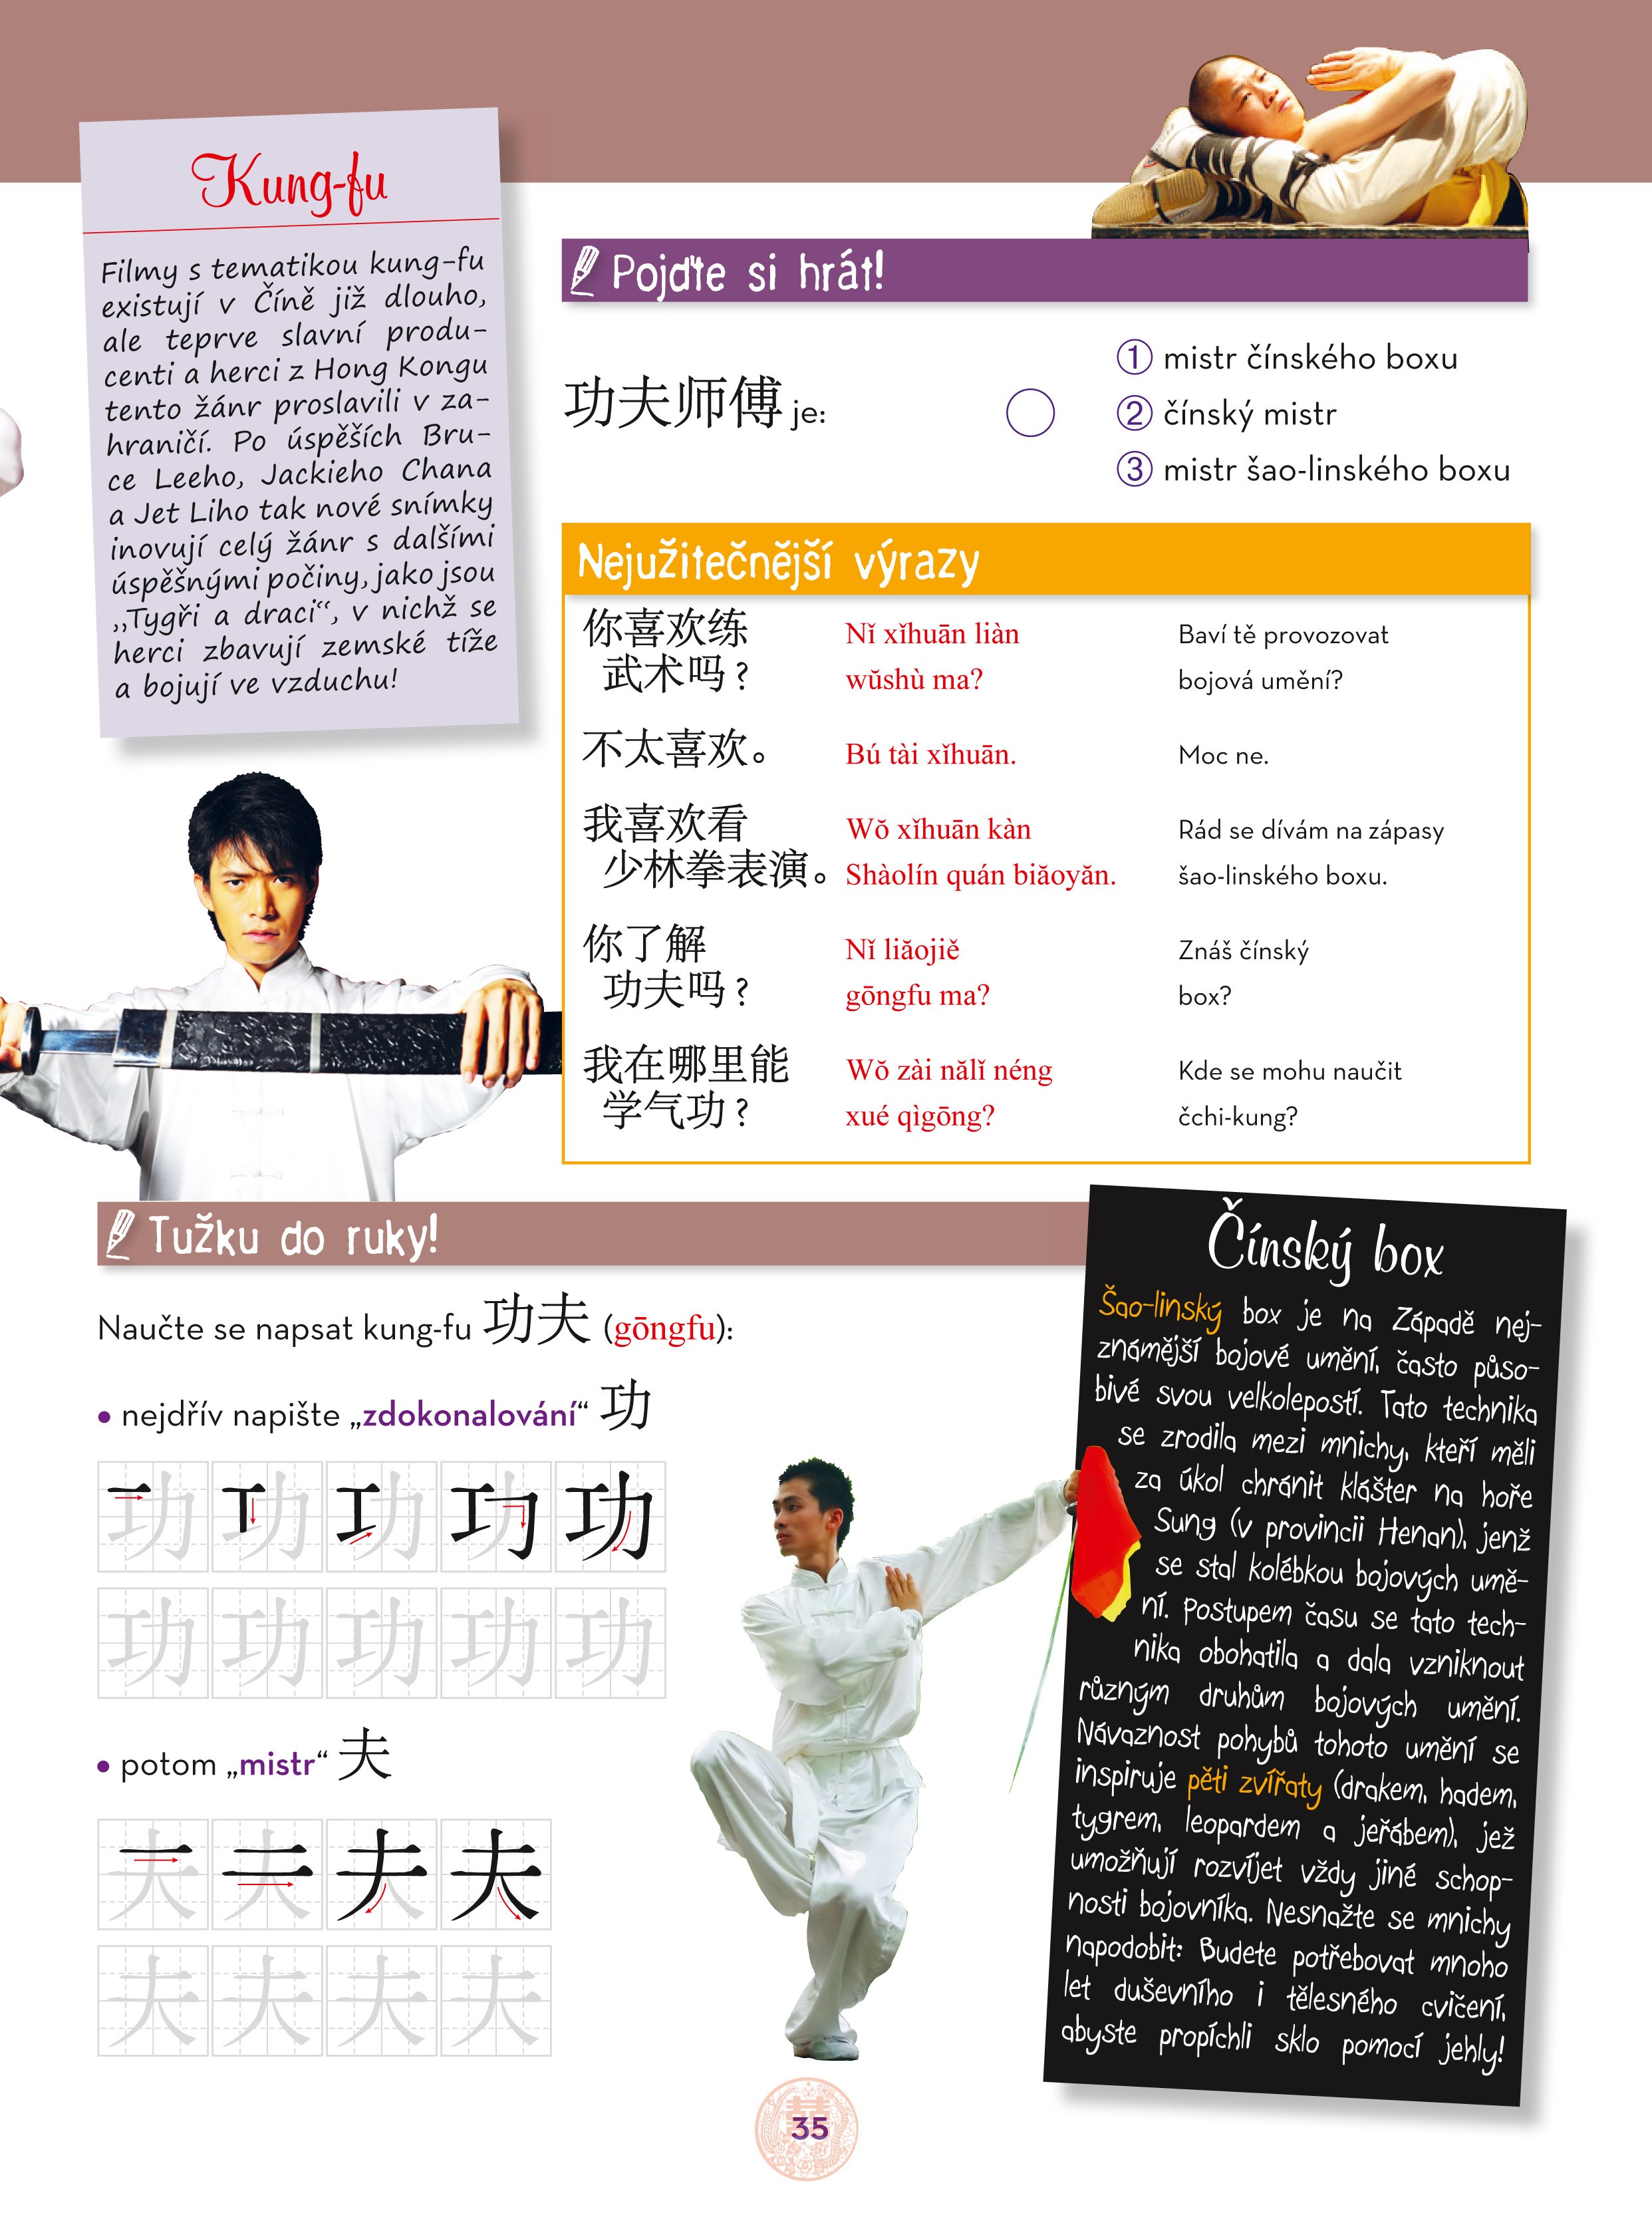 Kung-fu
Filmy s tematikou kung-fu
existují v Číně již dlouho,
ale teprve slavní produ-
centi a herci z Hong Kongu
tento žánr proslavili v za-
hraničí. Po úspěších Bru-
ce Leeho, Jackieho Chana
a Jet Liho tak nové snímky
inovují celý žánr s dalšími
úspěšnými počiny, jako jsou
„Tygři a draci“, v nichž se
herci zbavují zemské tíže
a bojují ve vzduchu!
Pojďte si hrát!
功夫师傅 je:
① mistr čínského boxu
② čínský mistr
③ mistr šao-linského boxu
Nejužitečnější výrazy
你喜欢练 Nǐ xǐhuān liàn Baví tě provozovat
武术吗? wǔshù ma? bojová umění?
不太喜欢。 Bú tài xǐhuān. Moc ne.
我喜欢看 Wǒ xǐhuān kàn Rád se dívám na zápasy
少林拳表演。 Shàolín quán biǎoyǎn. šao-linského boxu.
你了解 Nǐ liǎojiě Znáš čínský
功夫吗? gōngfu ma? box?
我在哪里能 Wǒ zài nǎlǐ néng Kde se mohu naučit
学气功? xué qìgōng? čchi-kung?
Tužku do ruky!
Naučte se napsat kung-fu 功夫 (gōngfu):
• nejdřív napište „zdokonalování“ 功
功 功 功 功 功
功 功 功 功 功
• potom „mistr“ 夫
夫 夫 夫 夫
夫 夫 夫 夫
Čínský box
Šao-linský box je na Západě nej-
známější bojové umění, často půso-
bivé svou velkolepostí. Tato technika
se zrodila mezi mnichy, kteří měli
za úkol chránit klášter na hoře
Sung (v provincii Henan), jenž
se stal kolébkou bojových umě-
ní. Postupem času se tato tech-
nika obohatila a dala vzniknout
různým druhům bojových umění.
Návaznost pohybů tohoto umění se
inspiruje pěti zvířaty (drakem, hadem,
tygrem, leopardem a jeřábem), jež
umožňují rozvíjet vždy jiné schop-
nosti bojovníka. Nesnažte se mnichy
napodobit: Budete potřebovat mnoho
let duševního i tělesného cvičení,
abyste propíchli sklo pomocí jehly!
35